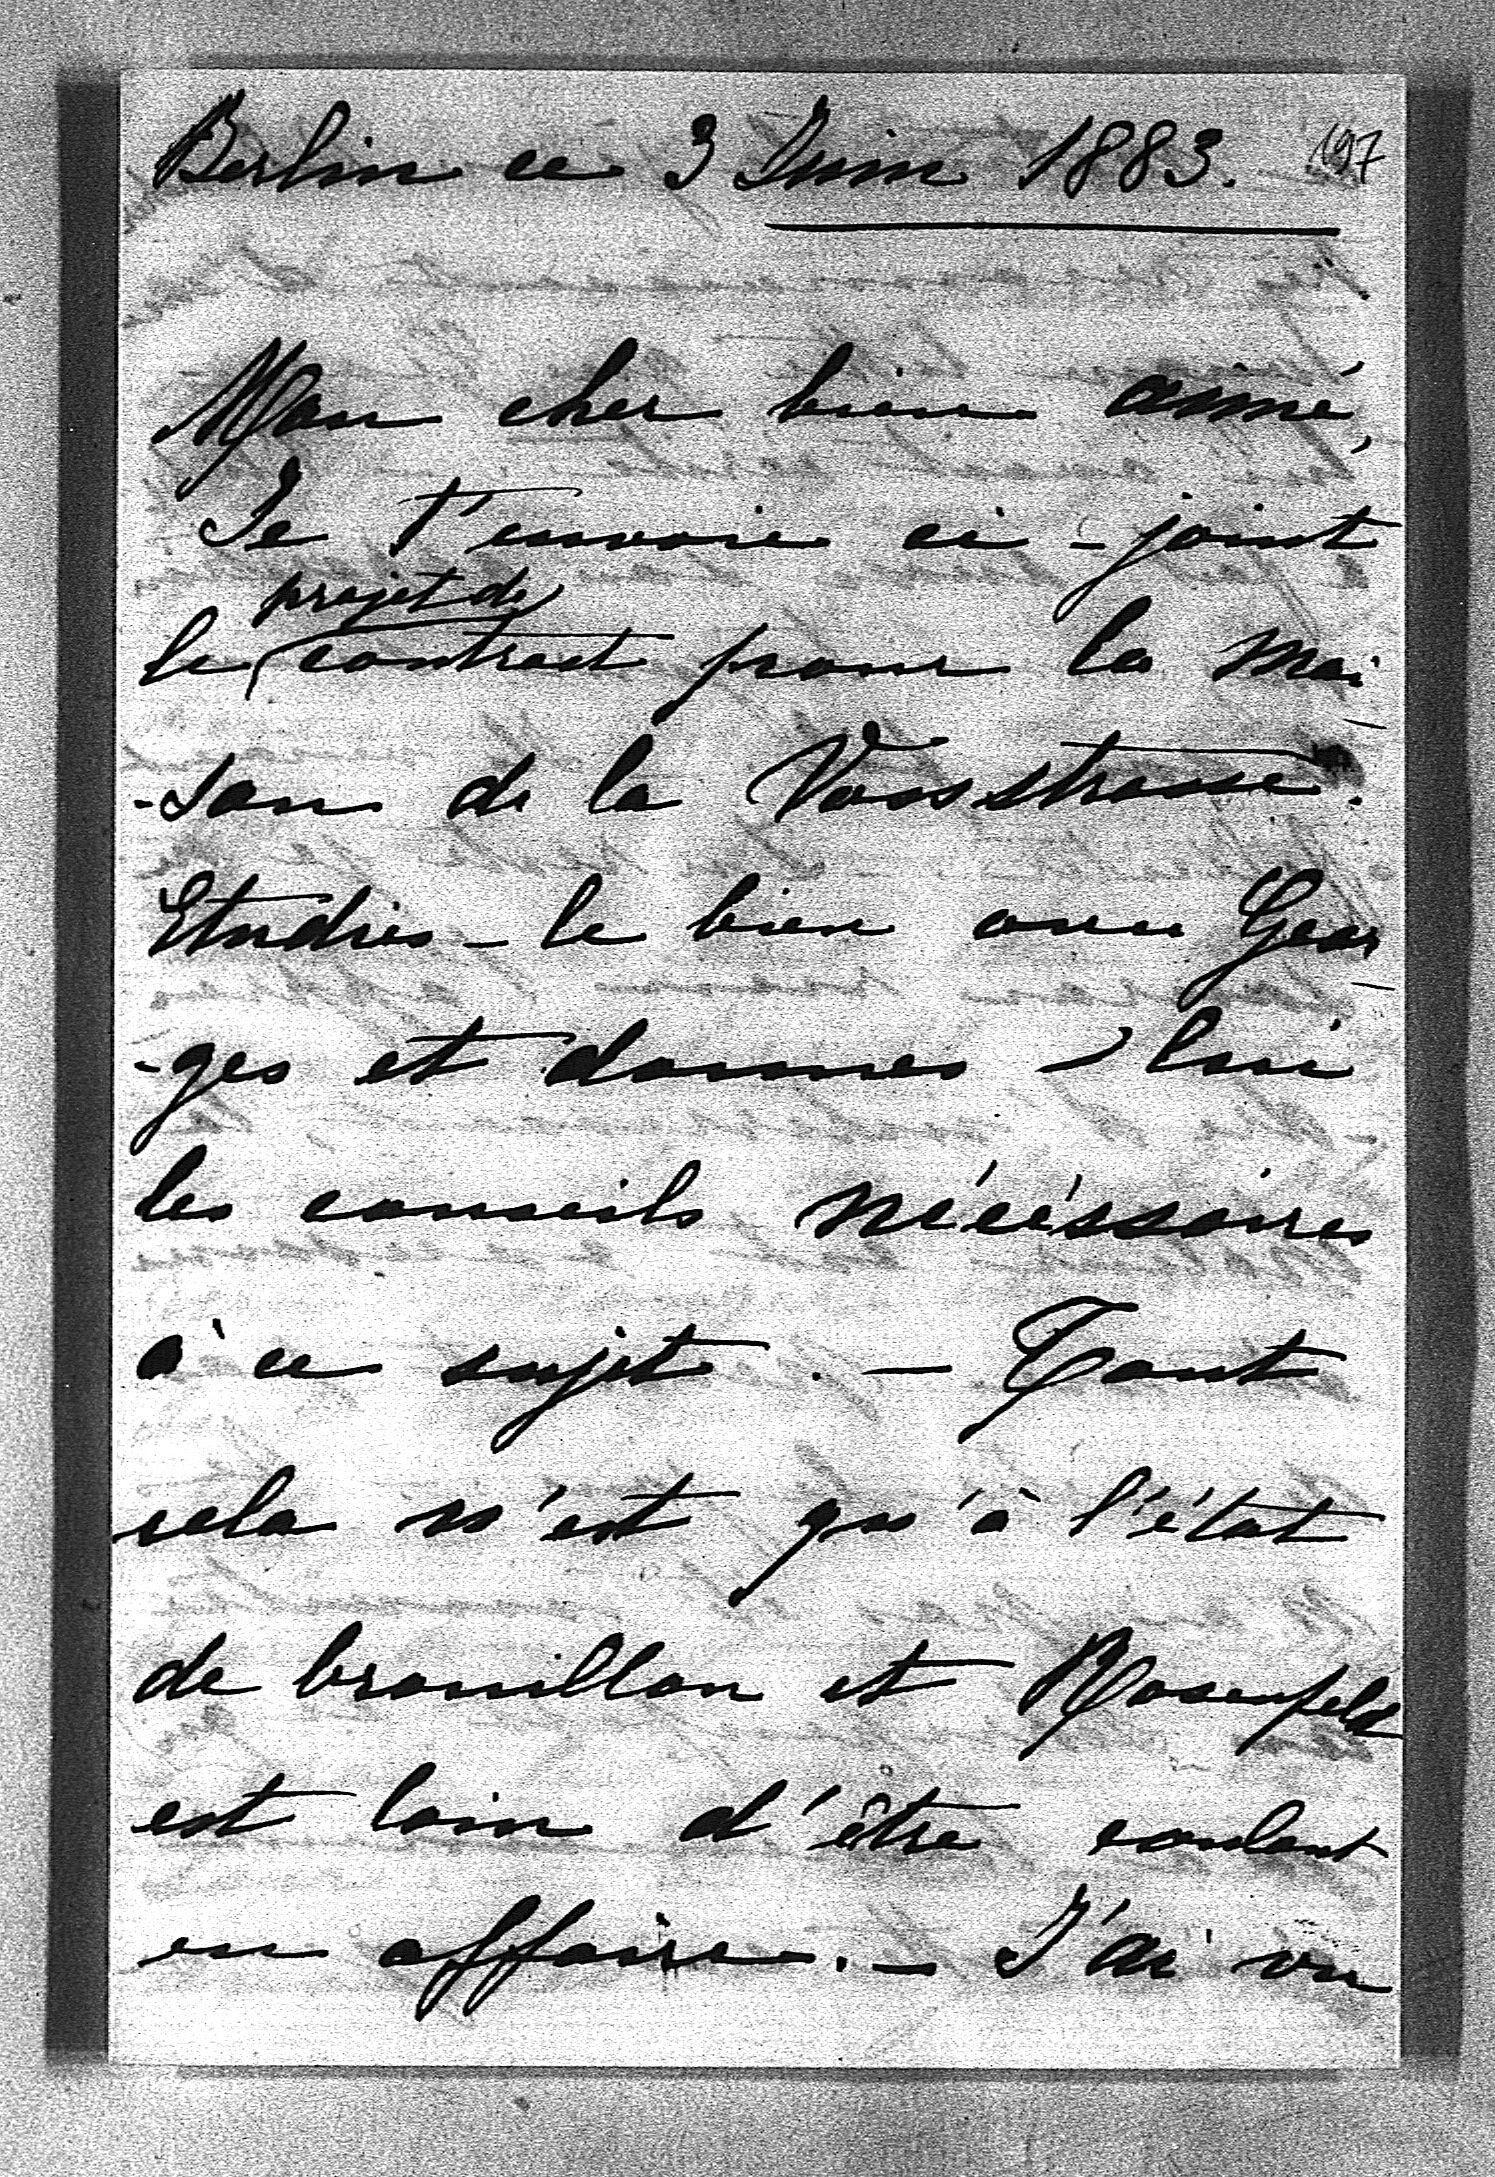 Berlin ce 3 Juin 1883. 197
Mon cher bien aimé,
Je t'envoie ci-joint
projet de
le contract pour la mai
-son de la Vossstrasse.
Etudies-le bien avec Geor
-ges et donnes-lui
les conseils nécéssaires
à ce sujet. — Tout
cela n'est qu'à l'état
de brouillon et Rosenfeld
est loin d'être coulant
en affaire. — J'ai vu